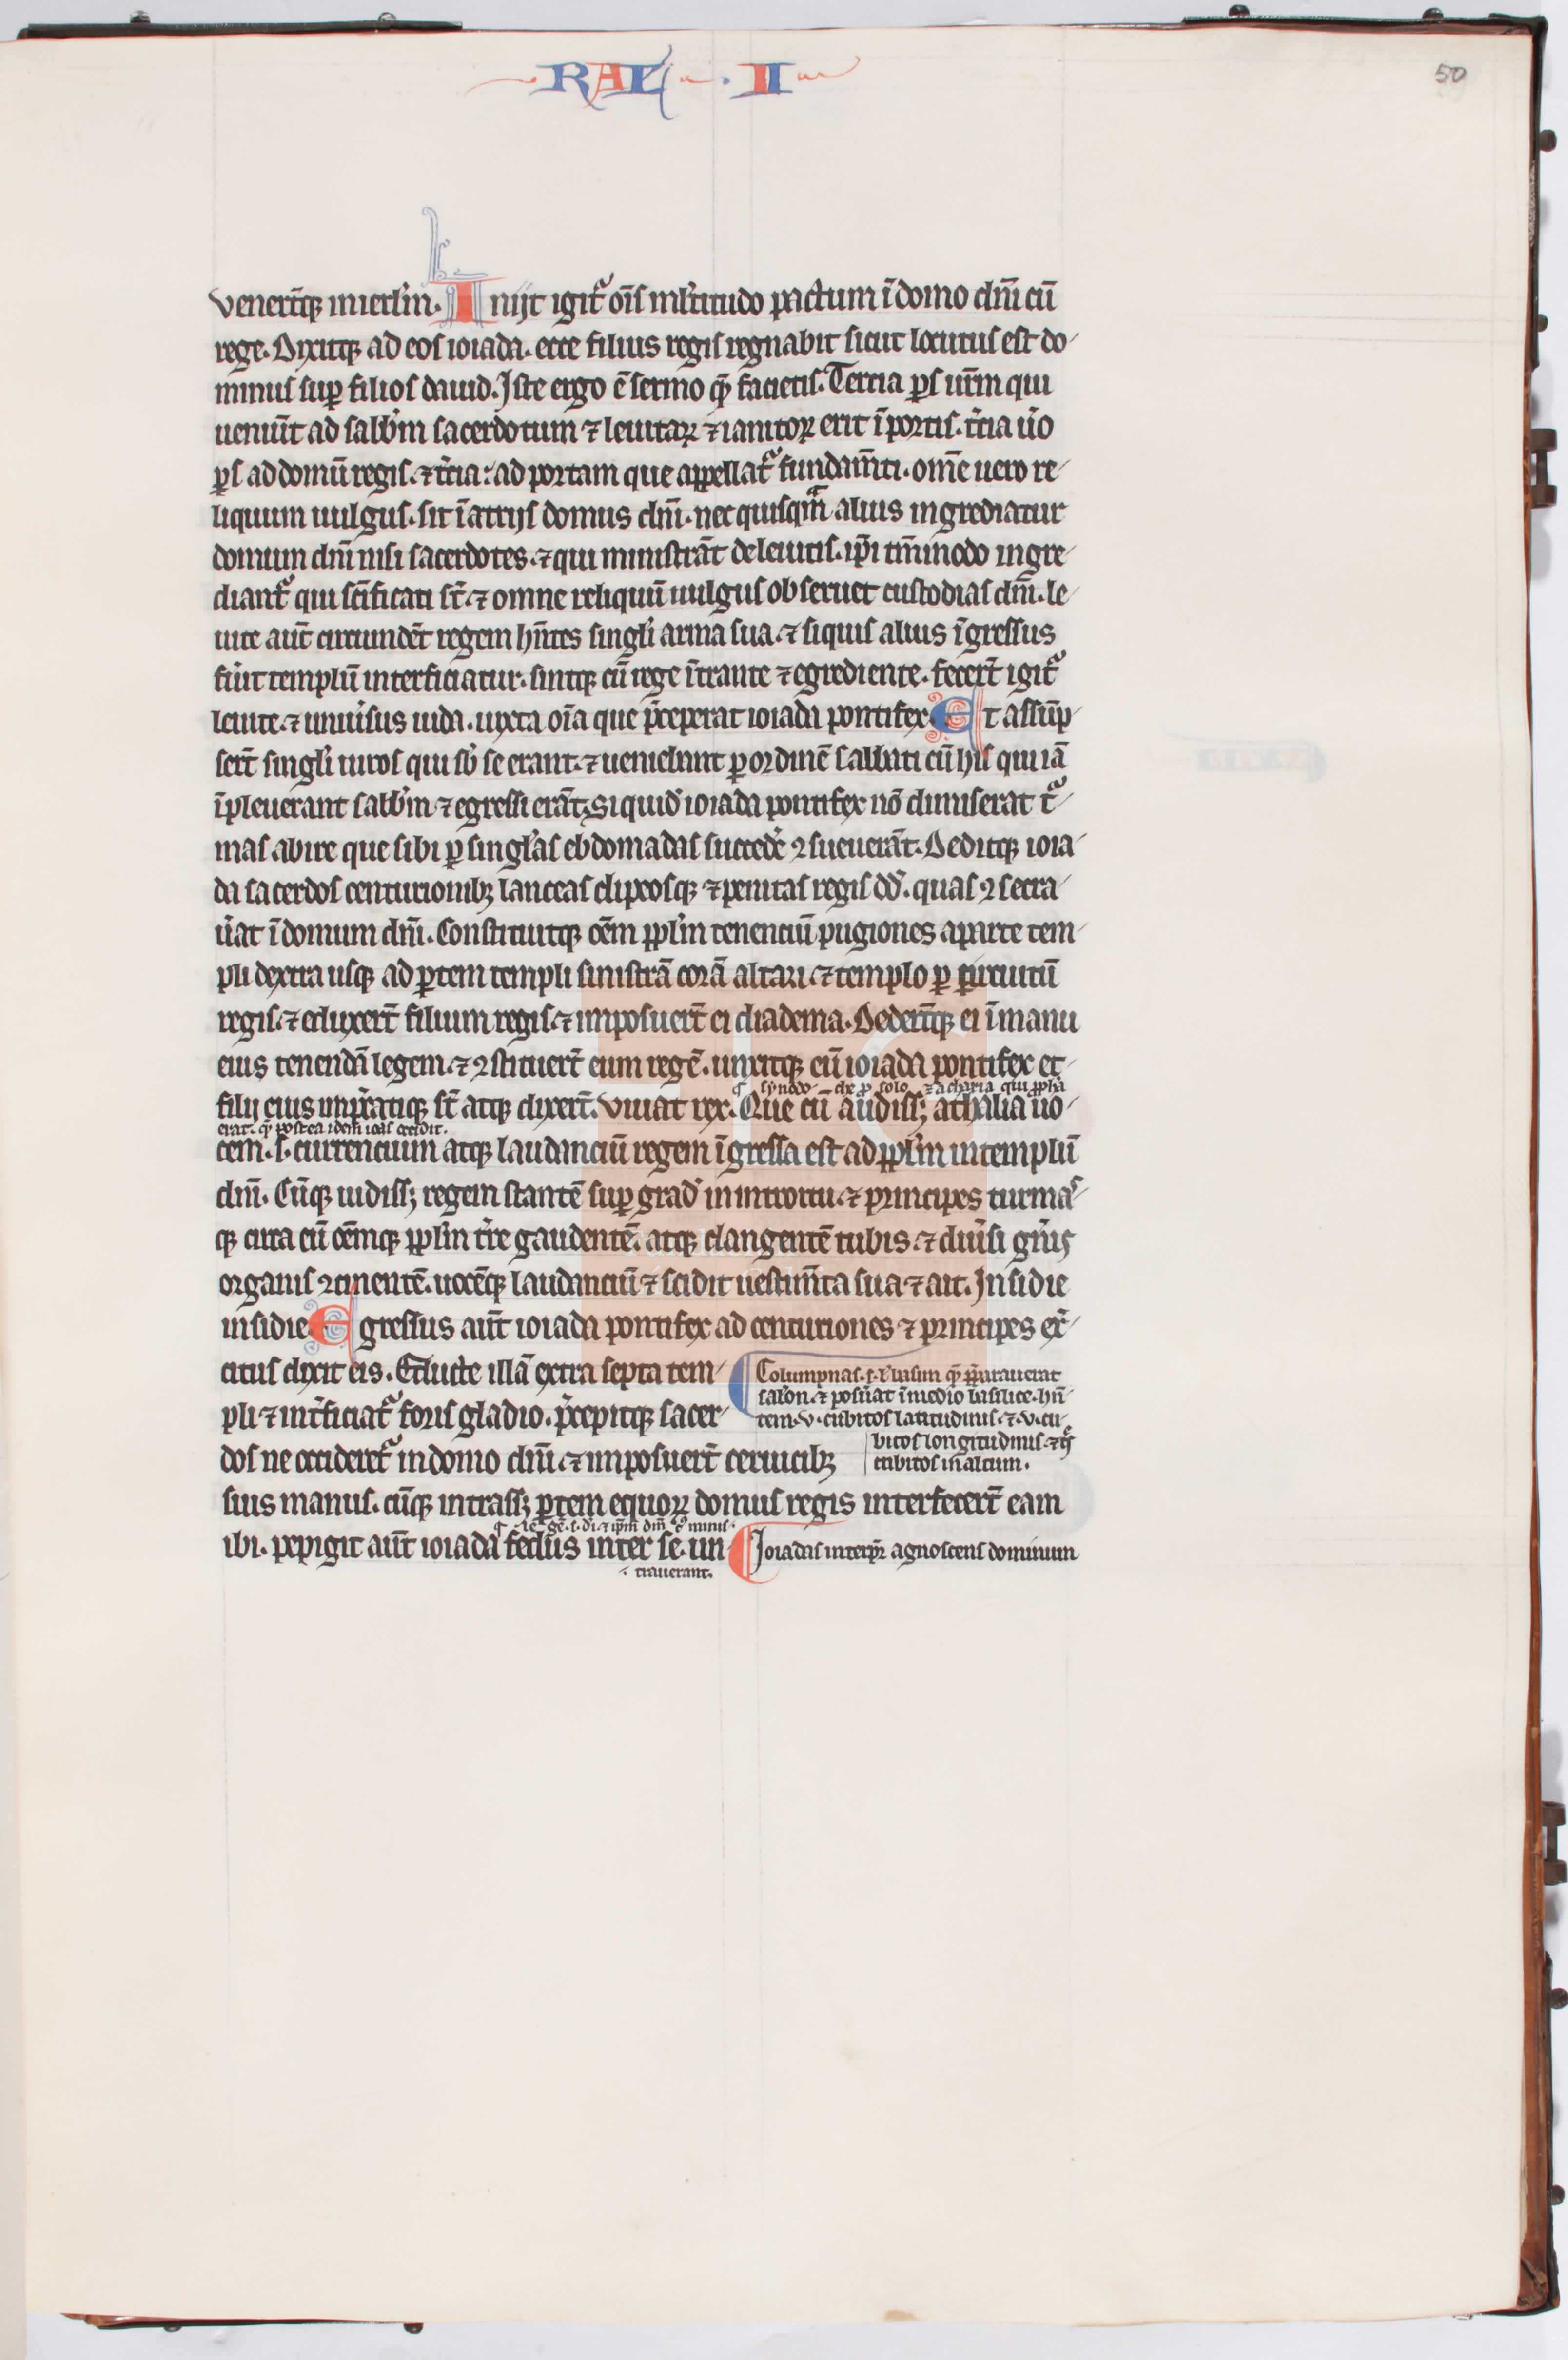 RAL · II
50
veneru̅tq; in ierl'm. Inijt igit᷑ oı̅s ml'titudo pactum ı̅ domo dn̅i cu̅
rege. Dixitq; ad eos ioiada. ecce filius regis regnabit sicut locutus est do-
minus sup̲ filios dauid. Iste ergo e̅ sermo que̅ facietis. Tercia p̲s ur̅m qui
ueniu̅t ad sabb'm sacerdotum ⁊ leuitaꝝ ⁊ ianitoꝝ erit ı̅ portis. t̅cia ů̅o
p̲s ad domu̅ regis. ⁊ t̅cia: ad portam que appellat᷑ fundam̅ti. om̅e uero re-
liquum uulgus. sit ı̅ atrijs domus dn̅i. nec quisqm̅ alius ingrediatur
domum dn̅i nisi sacerdotes. ⁊ qui ministra̅t de leuitis. ip̅i tm̅modo ingre-
diant᷑ qui sc̅ificati st̅. ⁊ omne reliquu̅ uulgus obseruet custodias dn̅i. le-
uite aut̅ circumde̅t regem hn̅tes singl'i arma sua. ⁊ siquis alius ı̅gressus
fu̅it templu̅ interficiatur. sintq; cu̅ rege ı̅trante ⁊ egrediente. fecert̅ igit᷑
leuite. ⁊ uniu̅sus iuda. iuxta oı̅a que p̅ceperat ioiada pontifex. Et assu̅p-
sert̅ singl'i uiros qui sb' se erant. ⁊ ueniebant p̲ ordine̅ sabbati cu̅ hijs qui ia̅
ı̅pleuerant sabb'm ⁊ egressi era̅t. Siquid' ioiada pontifex no̅ dimiserat t᷑-
mas abire que sibi p̲ singl'as ebdomadas succede̅ ꝯsueuera̅t. Deditq; ioia-
da sacerdos centurionib; lanceas clipeosq; ⁊ peltas regis dd̅. quas ꝯsecra-
u̅at ı̅ domum dn̅i. Constituitq; oe̅m ppl'm tenenciu̅ pugiones a parte tem-
pli dextra usq; ad p̲tem templi sinistra̅ cora̅ altari. ⁊ templo p̲ circuitu̅
regis. ⁊ eduxert̅ filium regis. ⁊ imposuert̅ ei diadema. Dedert̅q; ei ı̅ manu
eius tenenda̅ legem. ⁊ ꝯstituert̅ eum rege̅. unxitq; eu̅ ioiada pontifex et-
zacharia qui ppha
filij eius imp̅catiq; st̅ atq; dixert̅. viuat rex. Que cu̅ audiss; athalia uo-
erat. que̅ postea idem ioas occidit.
cem. s. currencium atq; laudanciu̅ regem ı̅gressa est ad ppl'm in templu̅
dn̅i. Cu̅q; uidiss; regem stante̅ sup̲ grad' in introitu. ⁊ principes turmas-
q; circa eu̅ oe̅mq; ppl'm t̅re gaudente̅. atq; clangente̅ tubis. ⁊ diu̅si gn̅is
organis ꝯcinente̅. uoce̅q; laudanciu̅ ⁊ scidit uestim̅ta sua ⁊ ait. Insidie
insidie. Egressus aut̅ ioiada pontifex ad centuriones ⁊ principes ex̅-
citus dixit eis. Educite illa̅ extra septa tem-
pli ⁊ int̅ficiat᷑ foris gladio. p̅cepitq; sacer-
dos ne occideret᷑ in domo dn̅i. ⁊ imposuert̅ ceruicib;
Columpnas. s. l' basim qm̅ pp̅arauerat
salo̅on. ⁊ posu̅at ı̅ medio basilice. hn̅-
tem. v. cubitos latitudinis. ⁊ v. cu-
bitos longitudinis. ⁊ iij
cubitos in altum.
suis manus. cu̅q; intrass; p̲tem equoꝝ domus regis interfecert̅ eam
ibi. pepigit aut̅ ioiada fedus inter se. un
Ioiadas interp̲r agnoscens dominum